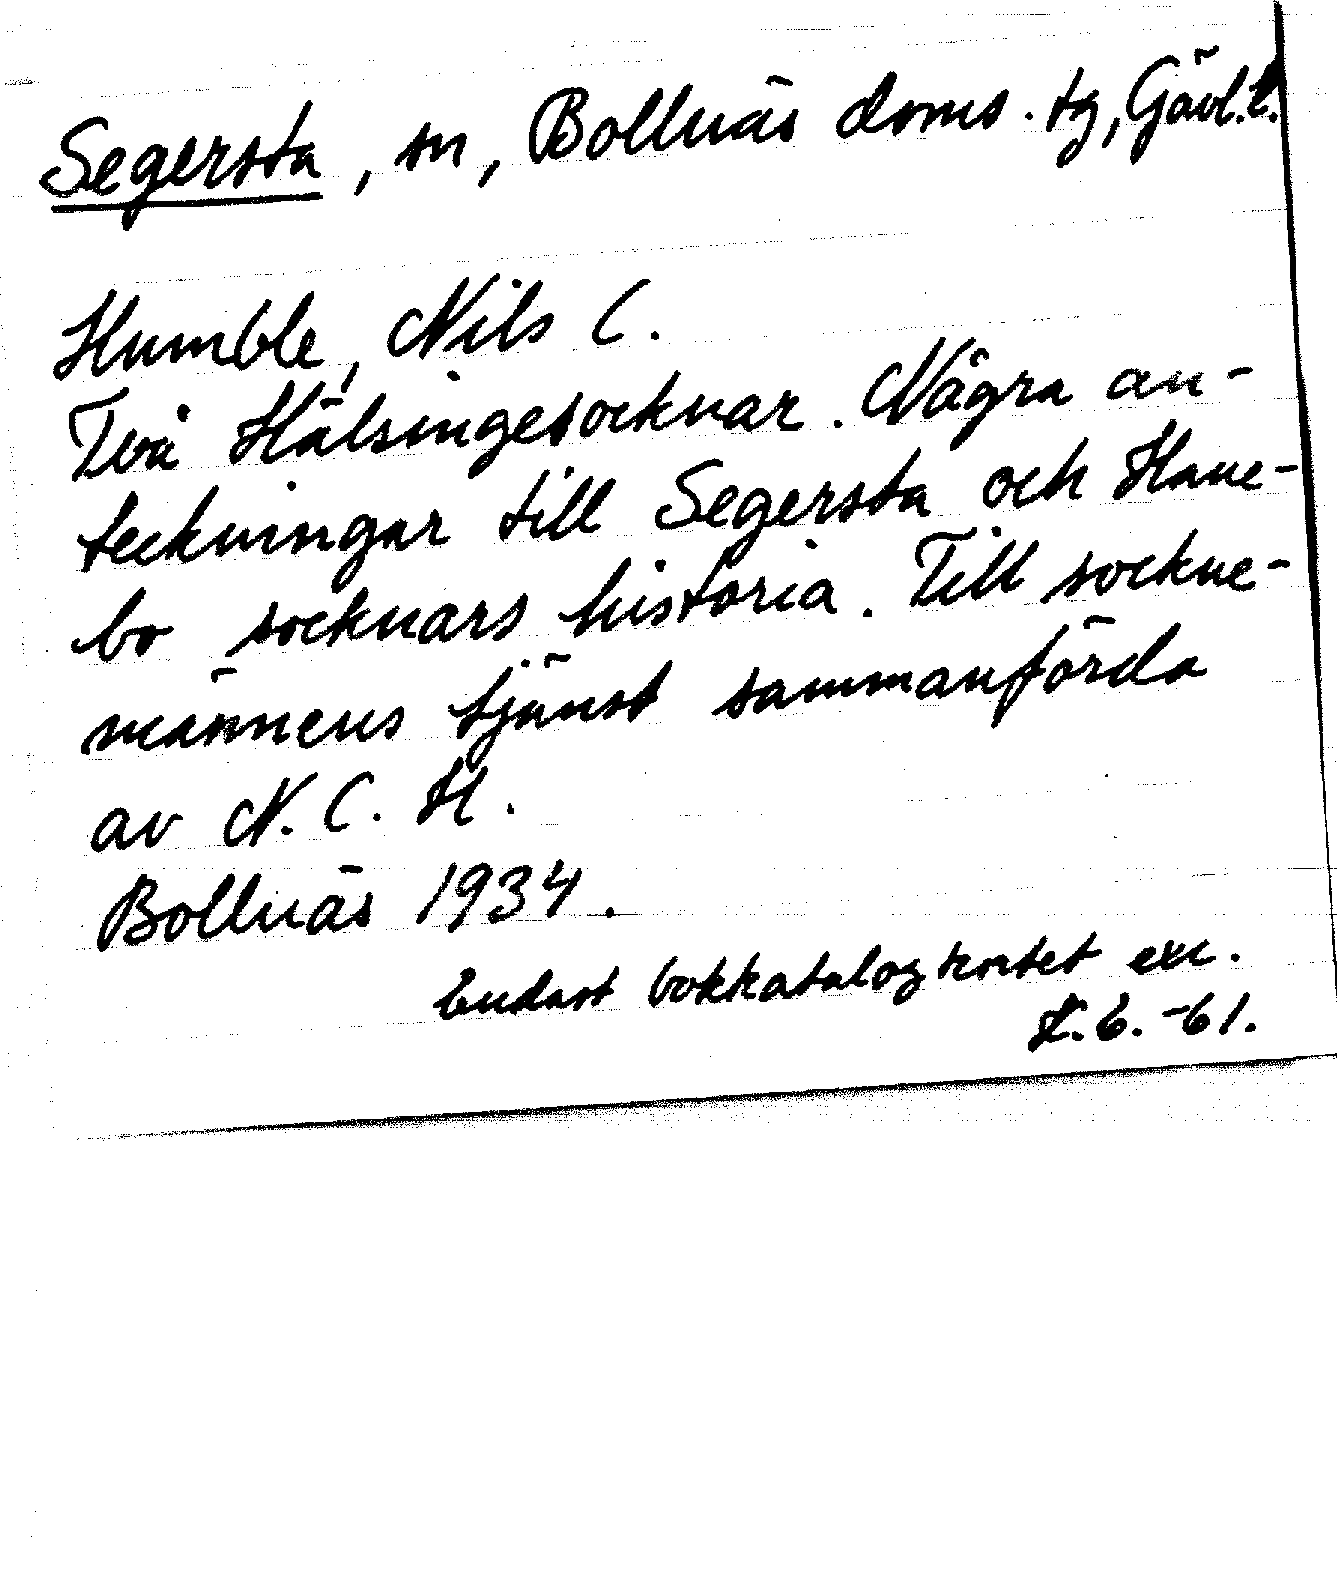 Segersta, sn, Bollnäs doms. tg, Gävl. l.
Humble, Nils C.
Två Hälsingesocknar. Några an-
teckningar till Segersta och Hane-
bo socknars historia. Till sockne-
männens tjänst sammanförda
av N. C. H.
Bollnäs 1934.
Endast bokkatalogkortet exc.
K. E. -61.